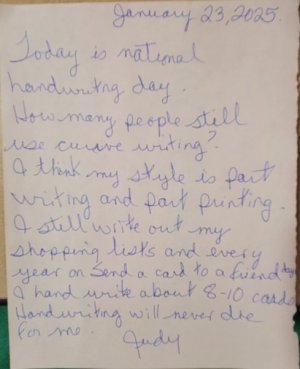 January 23, 2025.
Today is national
handwritng day.
How many people still
use cursive writing?
I think my style is part
writing and part printing.
I still write out my
shopping lists and every
year on Send a card to a friend day
I hand write about 8-10 cards
Handwriting will never die
for me.
Judy